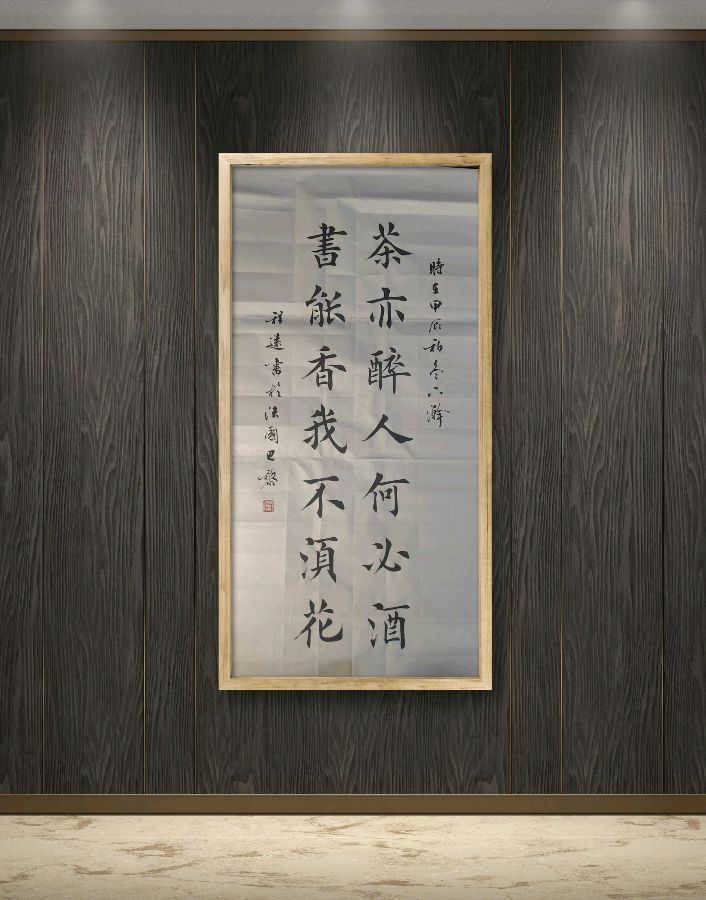 時在甲辰初冬下澣
茶亦醉人何必酒
書能香我不湏花
程遠書於法國巴黎